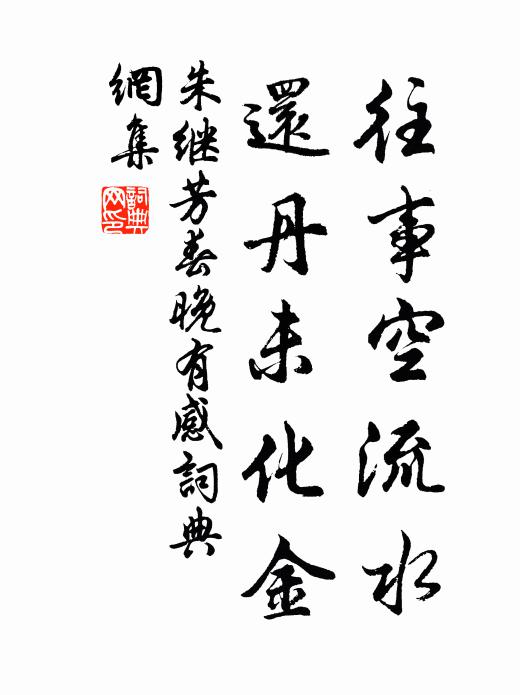 往事空流水
還丹未化金
朱继芳春晚有感詞典
網集
詞典
网印